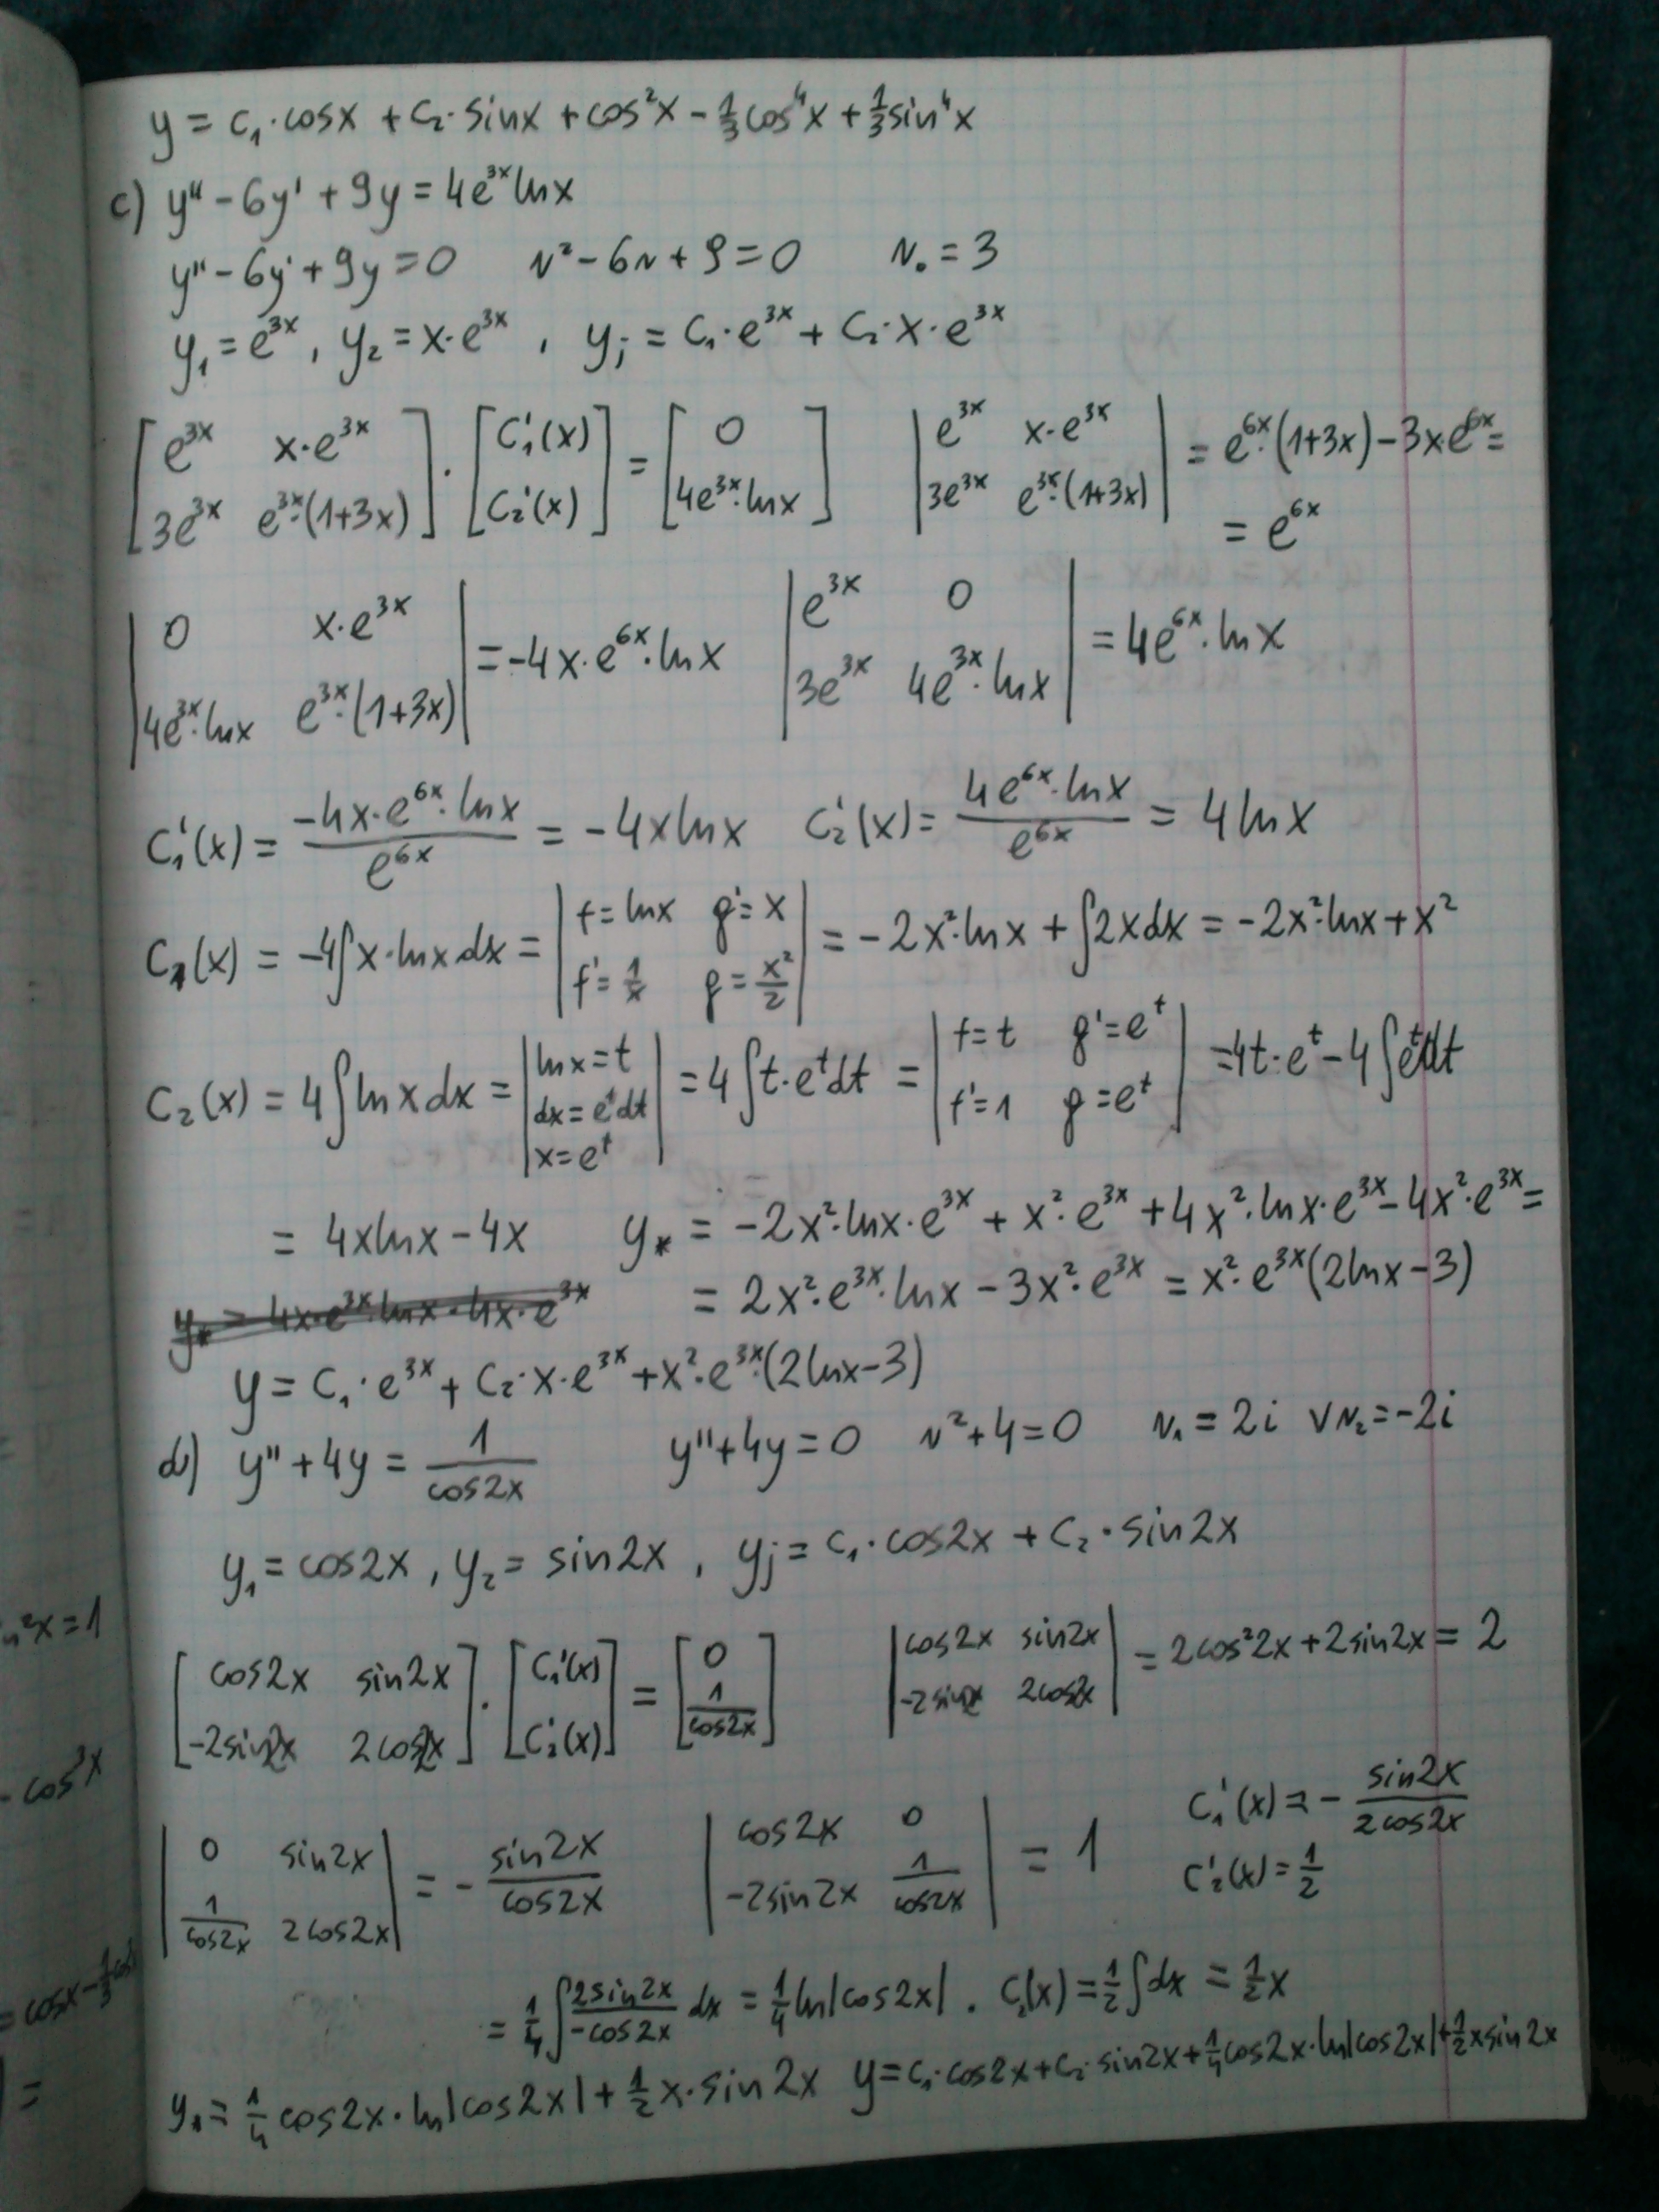 y = c₁·cosx + c₂·sinx + cos²x - 1/3 cos⁴x + 1/3 sin⁴x
c) y'' - 6y' + 9y = 4e^{3x} lnx
y'' - 6y' + 9y = 0   r² - 6r + 9 = 0   r₀ = 3
y₁ = e^{3x}, y₂ = x·e^{3x}, y_j = C₁·e^{3x} + C₂·x·e^{3x}
[e^{3x}  x·e^{3x}; 3e^{3x}  e^{3x}·(1+3x)] · [C₁'(x); C₂'(x)] = [0; 4e^{3x}·lnx]   |e^{3x}  x·e^{3x}; 3e^{3x}  e^{3x}·(1+3x)| = e^{6x}·(1+3x) - 3x·e^{6x} =
= e^{6x}
|0  x·e^{3x}; 4e^{3x}·lnx  e^{3x}·(1+3x)| = -4x·e^{6x}·lnx   |e^{3x}  0; 3e^{3x}  4e^{3x}·lnx| = 4e^{6x}·lnx
C₁'(x) = (-4x·e^{6x}·lnx)/e^{6x} = -4xlnx   C₂'(x) = (4e^{6x}·lnx)/e^{6x} = 4lnx
C₁(x) = -4∫x·lnx dx = |f = lnx  g' = x; f' = 1/x  g = x²/2| = -2x²·lnx + ∫2xdx = -2x²·lnx + x²
C₂(x) = 4∫lnxdx = |lnx = t; dx = e^t dt; x = e^t| = 4∫t·e^t dt = |f = t  g' = e^t; f' = 1  g = e^t| = 4t·e^t - 4∫e^t dt
= 4xlnx - 4x   y_* = -2x²·lnx·e^{3x} + x²·e^{3x} + 4x²·lnx·e^{3x} - 4x²·e^{3x} =
y_* = 4x·e^{3x}·lnx - 4x·e^{3x}   = 2x²·e^{3x}·lnx - 3x²·e^{3x} = x²·e^{3x}(2lnx - 3)
y = C₁·e^{3x} + C₂·x·e^{3x} + x²·e^{3x}·(2lnx - 3)
d) y'' + 4y = 1/cos2x   y'' + 4y = 0   r² + 4 = 0   r₁ = 2i ∨ r₂ = -2i
y₁ = cos2x, y₂ = sin2x, y_j = C₁·cos2x + C₂·sin2x
[cos2x  sin2x; -2sin2x  2cos2x] · [C₁'(x); C₂'(x)] = [0; 1/cos2x]   |cos2x  sin2x; -2sin2x  2cos2x| = 2cos²2x + 2sin2x = 2
|0  sin2x; 1/cos2x  2cos2x| = - sin2x/cos2x   |cos2x  0; -2sin2x  1/cos2x| = 1   C₁'(x) = - sin2x/2cos2x
C₂'(x) = 1/2
= 1/4 ∫ 2sin2x/-cos2x dx = 1/4 ln|cos2x|. C₂(x) = 1/2 ∫dx = 1/2 x
y_* = 1/4 cos2x·ln|cos2x| + 1/2 x·sin2x   y = C₁·cos2x + C₂·sin2x + 1/4 cos2x·ln|cos2x| + 1/2 xsin2x